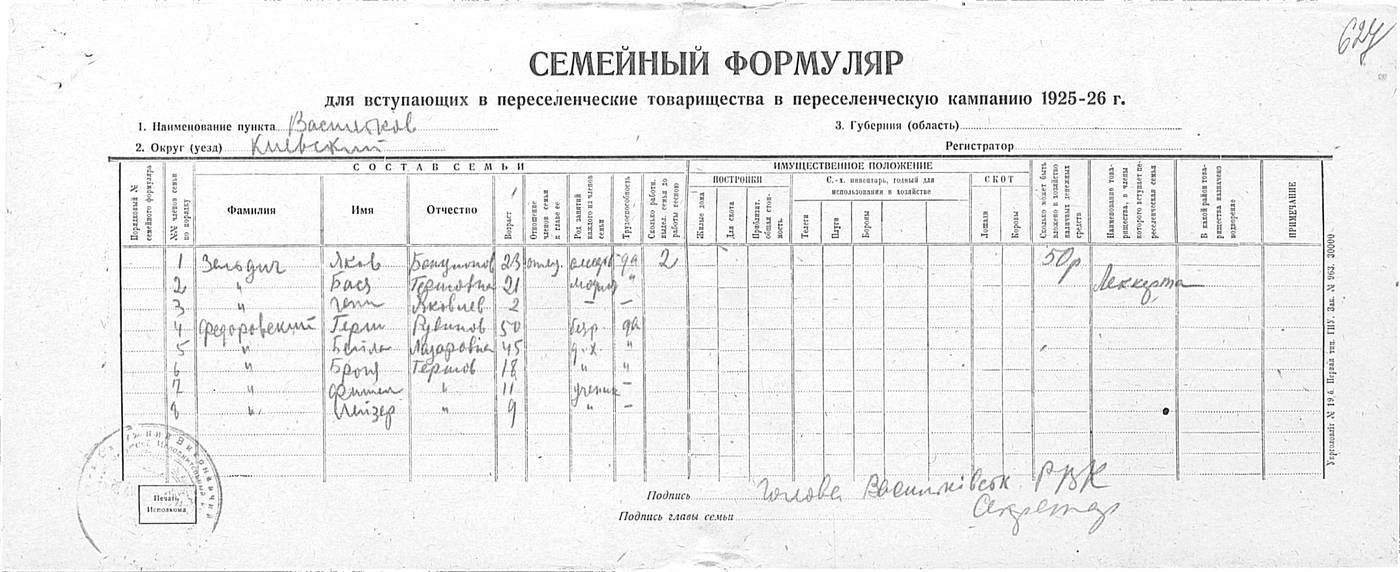 627
СЕМЕЙНЫЙ ФОРМУЛЯР
для вступающих в переселенческие товарищества в переселенческую кампанию 1925-26 г.
1. Наименование пункта Васильков
3. Губерния (область)
2. Округ (уезд) Киевский
Регистратор
СОСТАВ СЕМЬИ
ИМУЩЕСТВЕННОЕ ПОЛОЖЕНИЕ
ПОСТРОЙКИ
С.-х. инвентарь, годный для использования в хозяйстве
СКОТ
Порядковый № семейного формуляра
№№ членов семьи по порядку
Фамилия
Имя
Отчество
Возраст
Отношение членов семьи к главе ее
Род занятий каждого из членов семьи
Трудоспособность
Сколько работн. выдел. семья до работы весною
Жилые дома
Для скота
Приблизит. общая стоимость.
Телеги
Плуги
Бороны
Лошади
Коровы
Сколько может быть вложено в хозяйство наличных денежных средств
Наименование товарищества, в члены которого вступает переселенческая семья
В какой район товарищества назначено водворение
ПРИМЕЧАНИЕ
1 Зельдич Яков 23 да 2 50р
2 " Бася Гершовна 21 " Леккерта
3 " Яковлев 2 — —
4 Федоровский Герш Рувинов 50 безр. да
5 " Бейла Лазаровна 45 д.х. "
6 " Броня Гершов 18 " "
7 " " 11 ученик —
8 " Лейзер " 9 " —
Печать Исполкома
Подпись Голова Васильківськ. РВК
Подпись главы семьи Секретар
Укрголовліт № 19.6. Первая тип. ГПУ. Зак. № 963. 30000